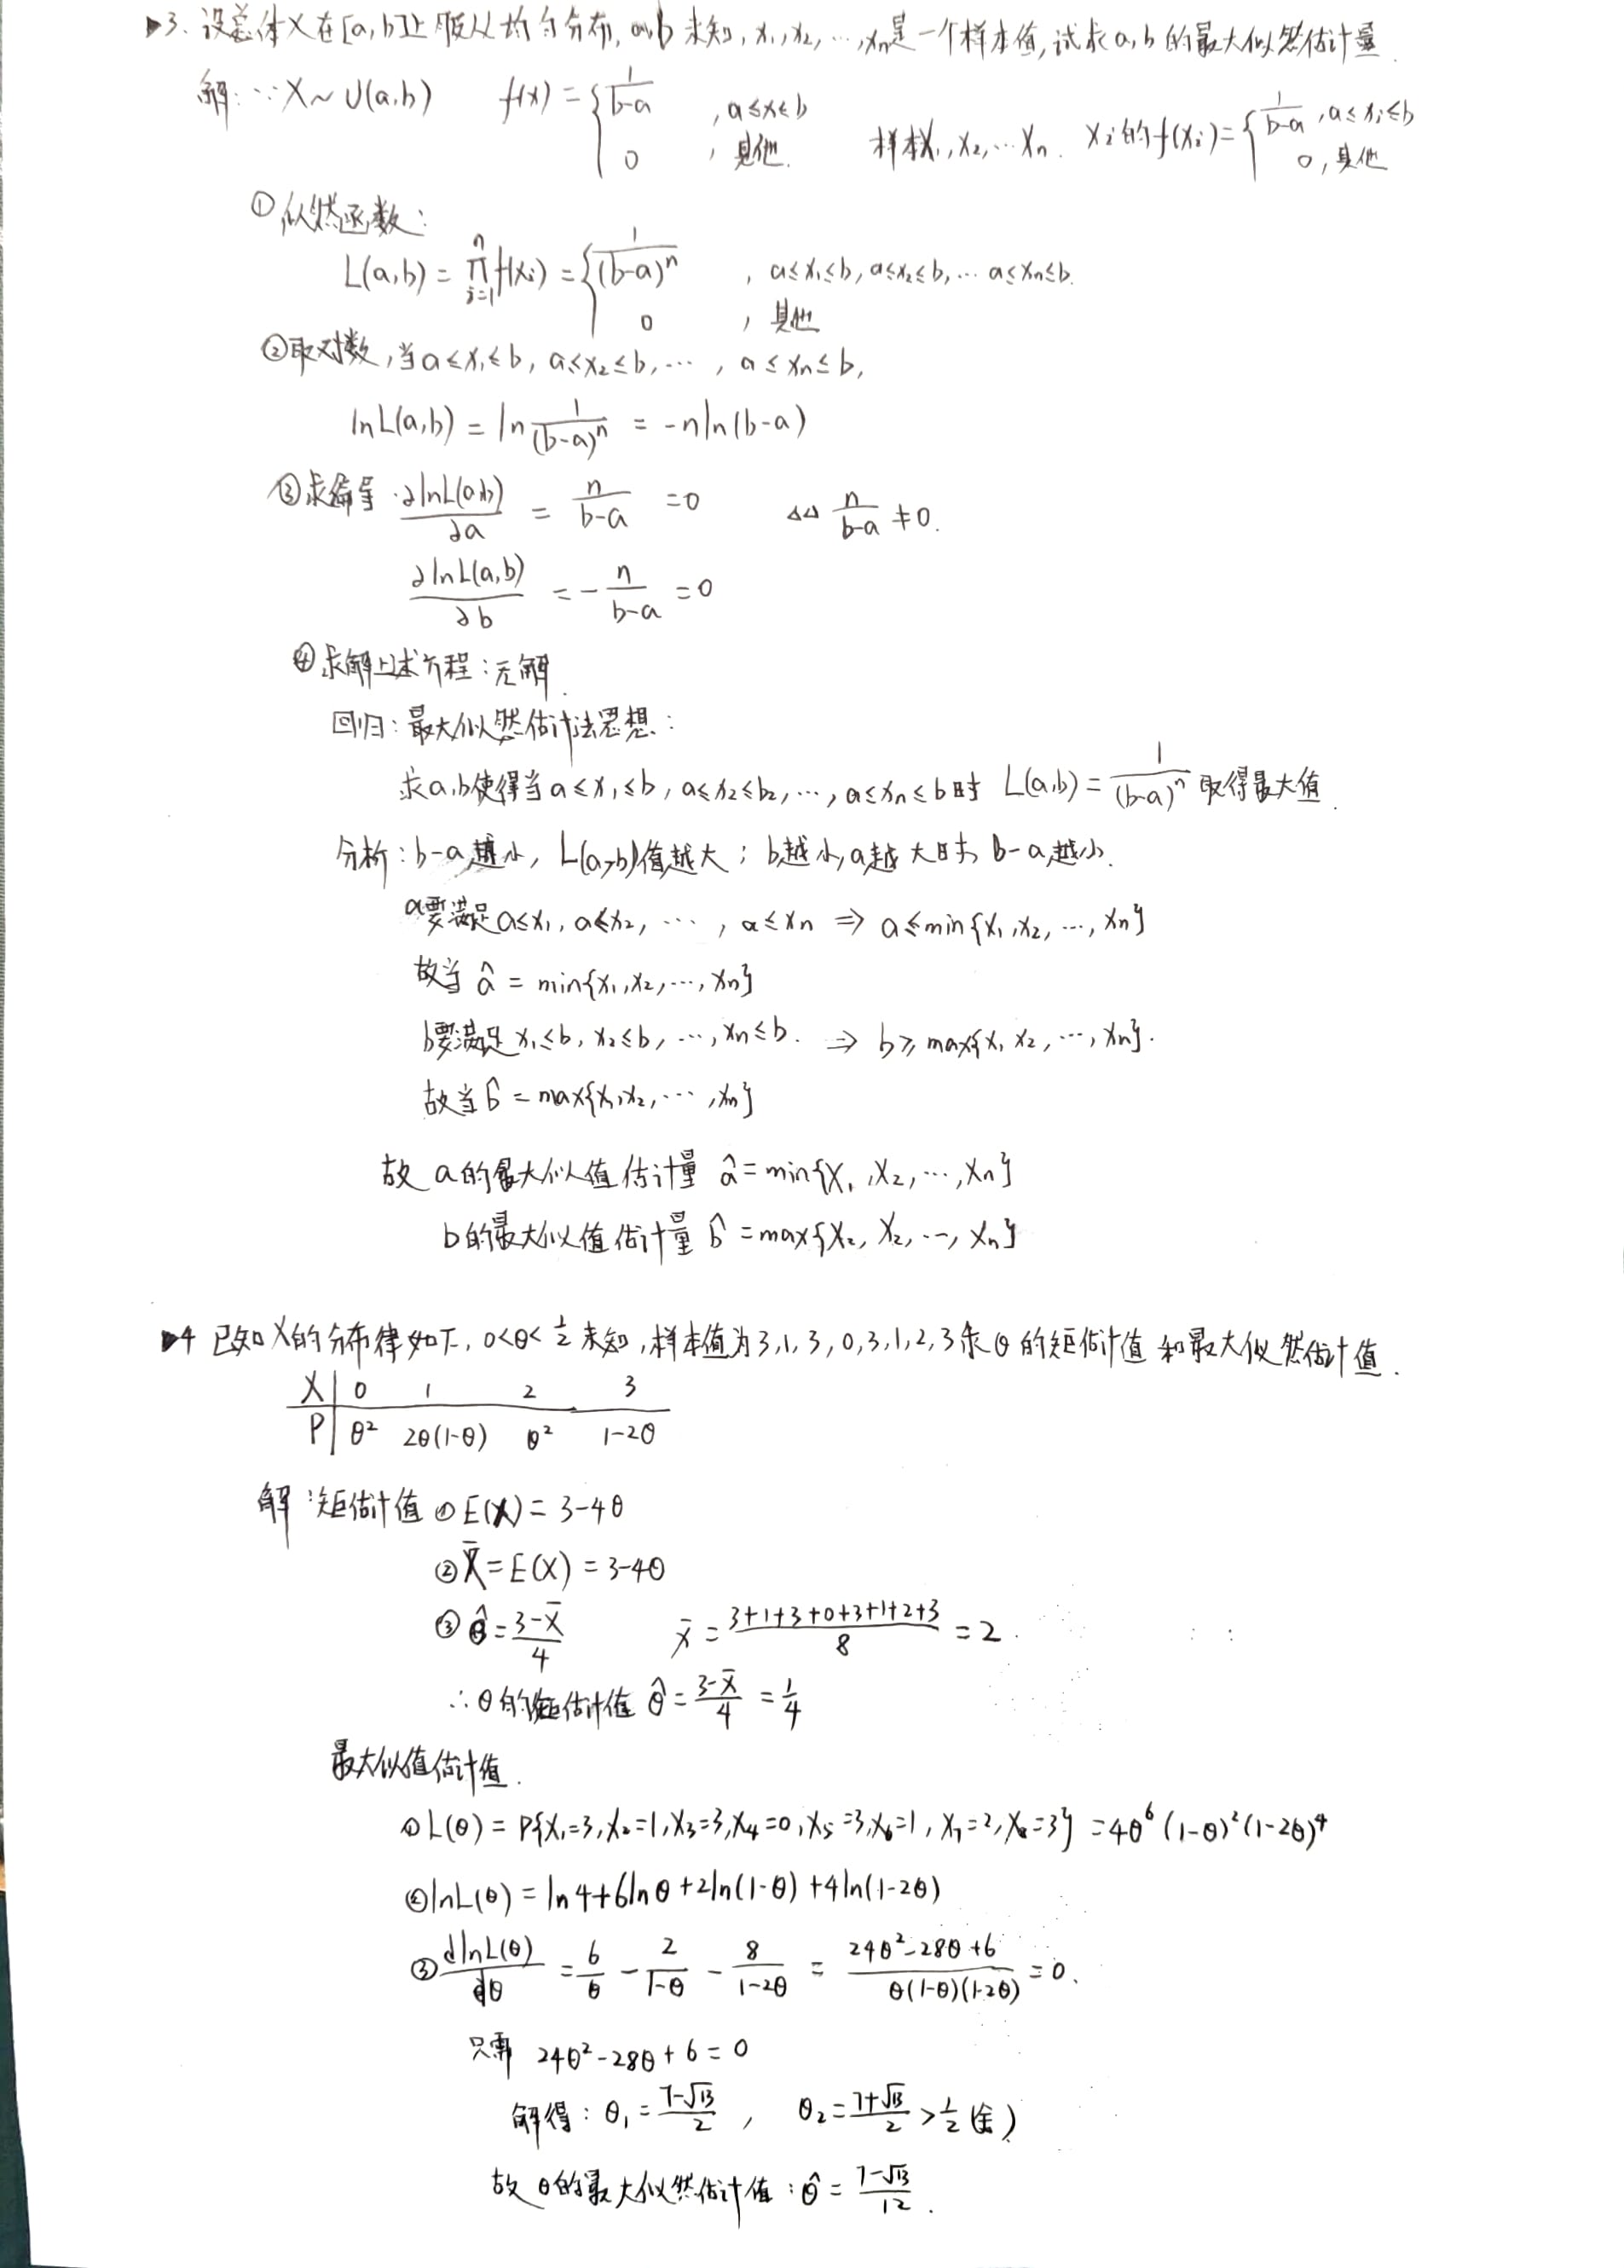 3. 设总体X在[a,b]上服从均匀分布, a,b 未知, x₁,x₂,…,xₙ是一个样本值,试求a,b的最大似然估计量.
解: ∵X~U(a,b) f(x)={1/(b-a) , a≤x≤b ; 0 , 其他. 样本X₁,X₂,…Xₙ. Xᵢ的f(xᵢ)={1/(b-a) , a≤xᵢ≤b ; 0, 其他
①似然函数:
L(a,b) = ∏ᵢ₌₁ⁿ f(xᵢ) = {1/(b-a)ⁿ , a≤x₁≤b, a≤x₂≤b, … a≤xₙ≤b. ; 0 , 其他
②取对数,当a≤x₁≤b, a≤x₂≤b, … , a≤xₙ≤b,
lnL(a,b) = ln 1/(b-a)ⁿ = -nln(b-a)
③求偏导. ∂lnL(a,b)/∂a = n/(b-a) =0 △△ n/(b-a) ≠0.
∂lnL(a,b)/∂b = -n/(b-a) =0
④求解上述方程:无解.
回归: 最大似然估计法思想:
求a,b使得当a≤x₁≤b, a≤x₂≤b₂, …, a≤xₙ≤b时 L(a,b)=1/(b-a)ⁿ 取得最大值.
分析: b-a越小, L(a,b)值越大; b越小,a越大时, b-a越小.
a要满足a≤x₁, a≤x₂, … , a≤xₙ ⇒ a≤min{x₁,x₂,…,xₙ}
故当 â = min{x₁,x₂,…,xₙ}
b要满足x₁≤b, x₂≤b, …, xₙ≤b. ⇒ b≥max{x₁ x₂,…,xₙ}.
故当b̂ = max{x₁,x₂,…,xₙ}
故 a的最大似值估计量 â=min{X₁,X₂,…,Xₙ}
b的最大似值估计量 b̂ =max{X₂, X₂, …, Xₙ}
4 已知X的分布律如下, 0<θ<1/2 未知, 样本值为3,1,3,0,3,1,2,3求θ的矩估计值和最大似然估计值.
X | 0 1 2 3
P | θ² 2θ(1-θ) θ² 1-2θ
解:矩估计值 ①E(X)= 3-4θ
②X̄=E(X)=3-4θ
③θ̂=(3-X̄)/4 x̄=(3+1+3+0+3+1+2+3)/8=2.
∴θ的矩估计值 θ̂=(3-x̄)/4=1/4
最大似值估计值.
①L(θ) = P{X₁=3,X₂=1,X₃=3,X₄=0,X₅=3,X₆=1, X₇=2,X₈=3} =4θ⁶(1-θ)²(1-2θ)⁴
②lnL(θ) = ln4+6lnθ+2ln(1-θ)+4ln(1-2θ)
③dlnL(θ)/dθ = 6/θ - 2/(1-θ) - 8/(1-2θ) = (24θ²-28θ+6)/(θ(1-θ)(1-2θ)) =0.
只需 24θ²-28θ+6=0
解得: θ₁=(7-√13)/2 , θ₂=(7+√13)/2 >1/2 (舍)
故 θ的最大似然估计值:θ̂ = (7-√13)/12.